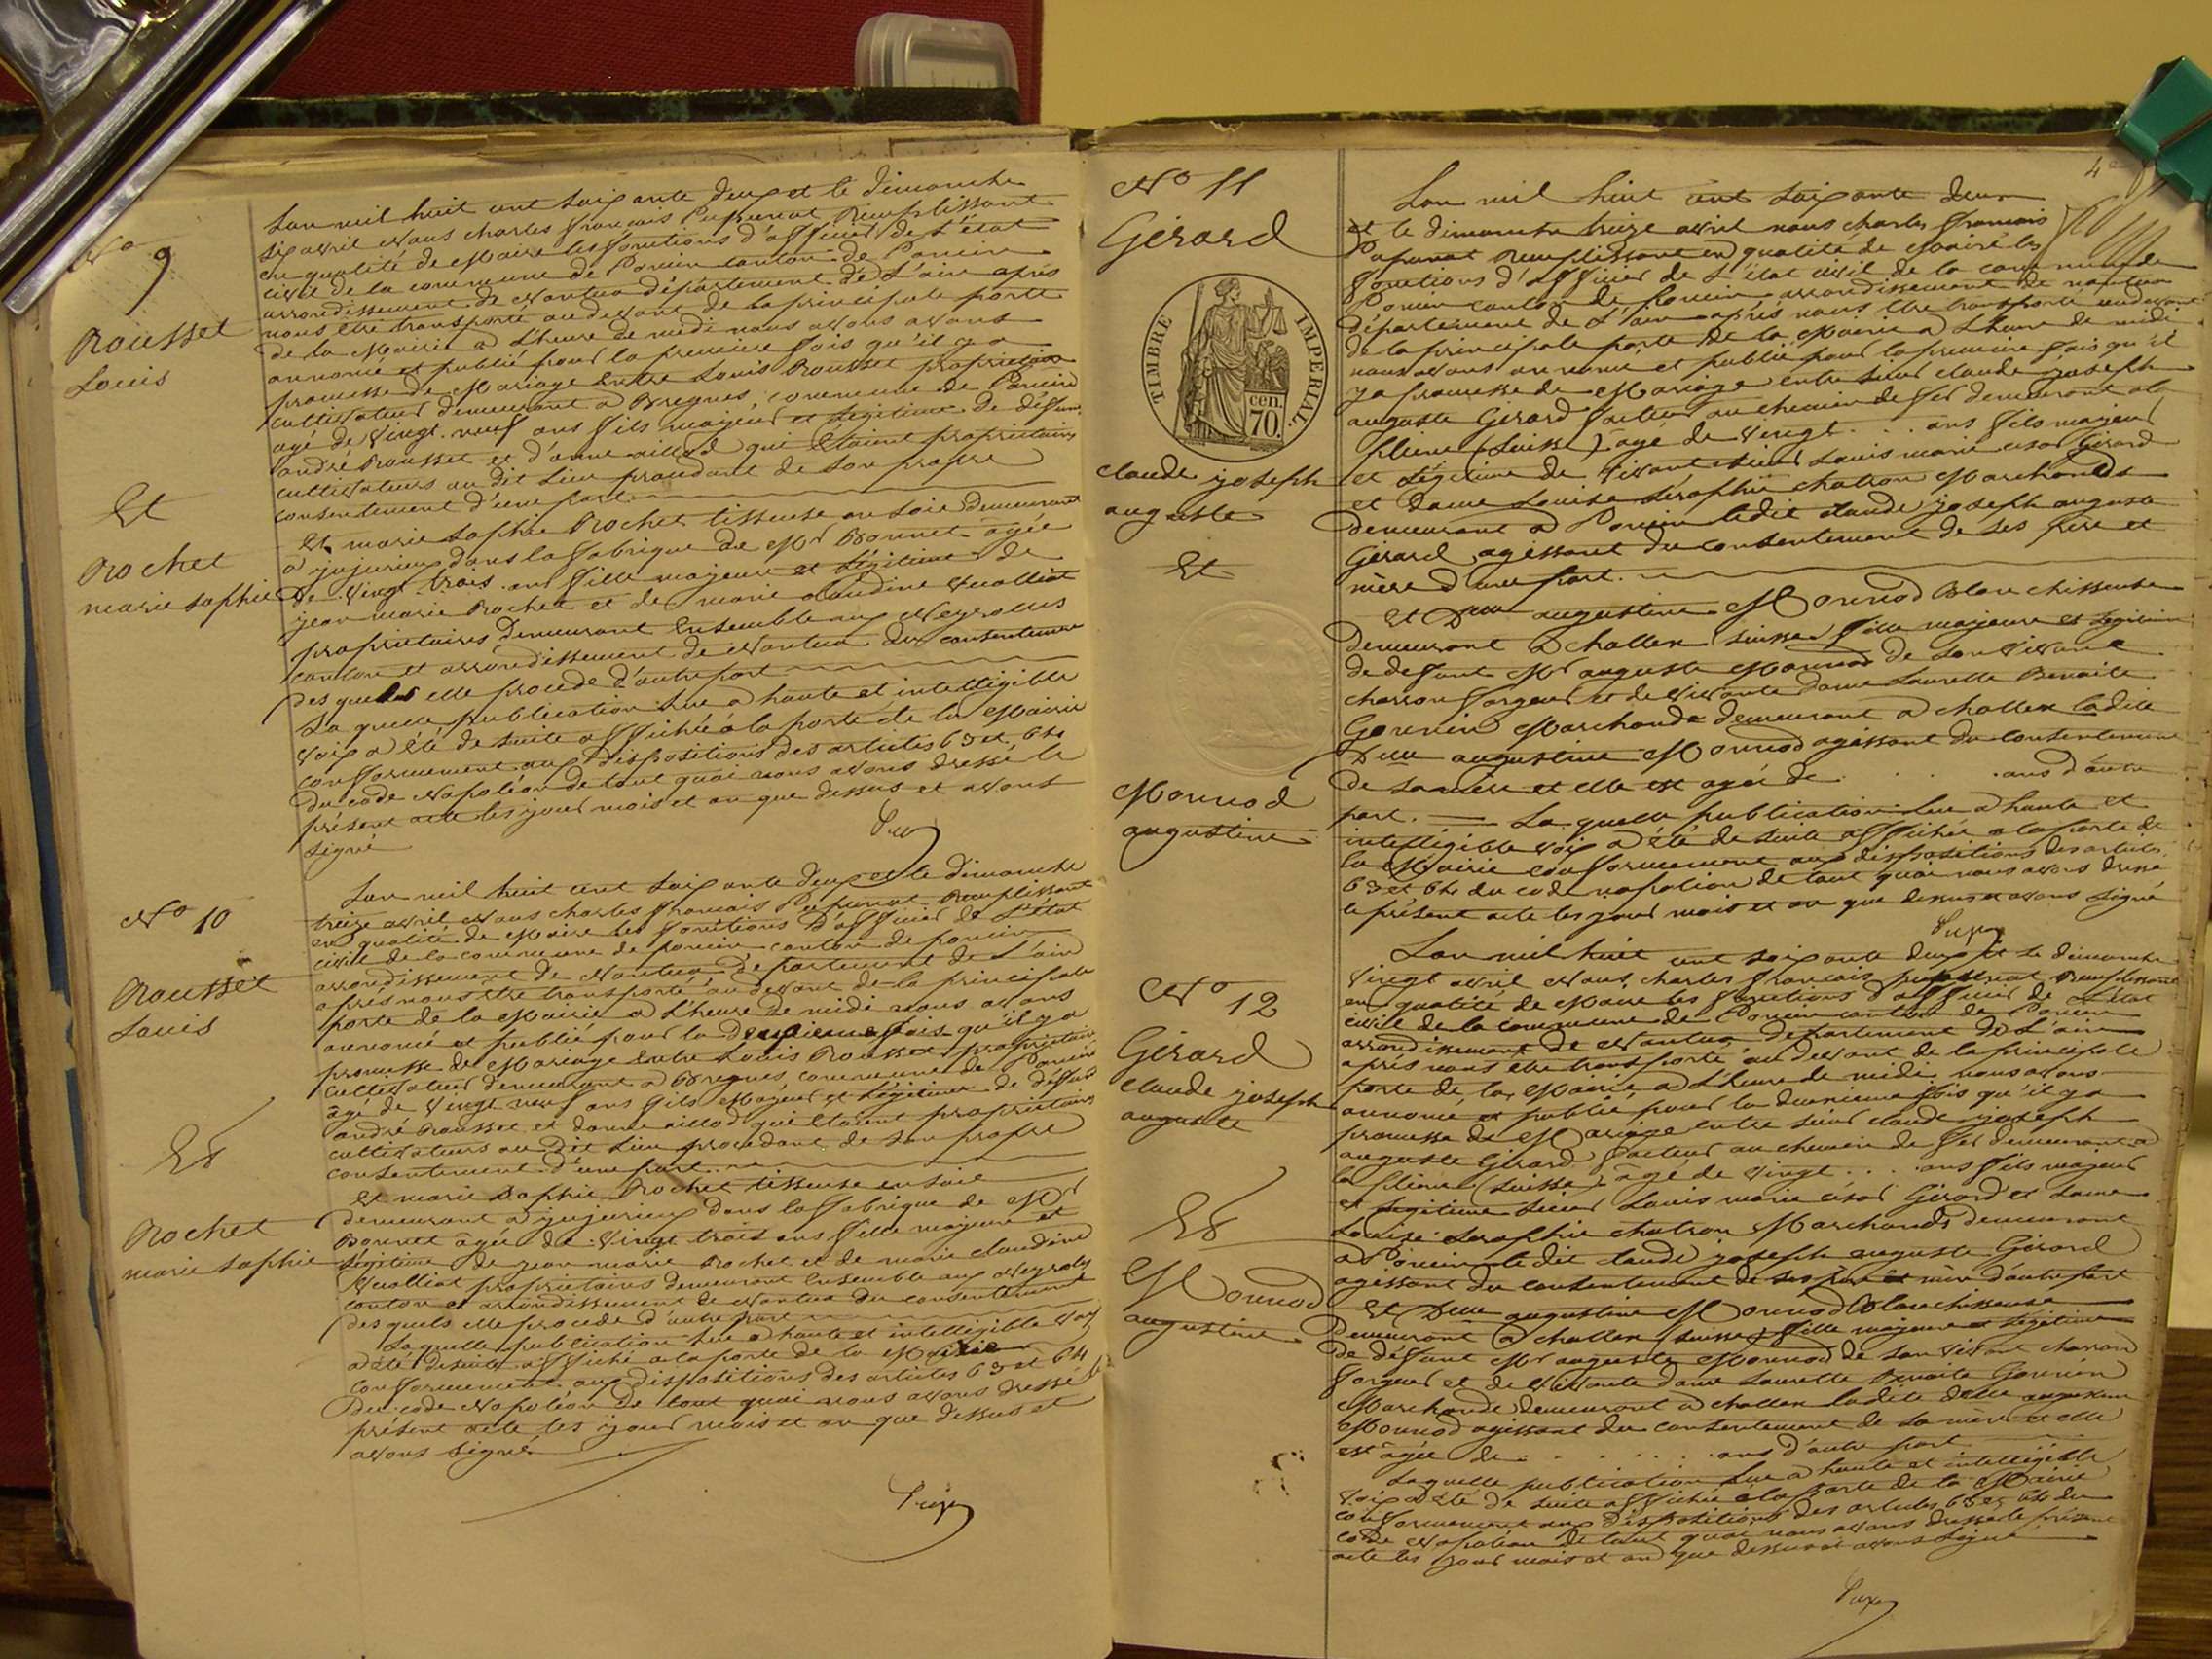 N° 9
Rousset
Louis
Et
Rochet
marie sophie
Lan mil huit cent soixante deux et le dimanche
six avril Nous charles françois remplissant
en qualité de Maire les fonctions d'officier de L'état
civil de la commune de Poncin canton de Poncin
arrondissement de Nantua département de L'ain après
nous être transporté au devant de la principale porte
de la Mairie a L'heure de midi nous avons avons
annoncé et publié pour la premiere fois qu'il y a
promesse de Mariage entre Louis Rousset propriétaire
cultivateur demeurant a Breignes commune de Poncin
agé de vingt-neuf ans fils majeur et légitime de défunt
andré Rousset et d'anne millod qui étaient propriétaires
cultivateurs au dit Lieu procedant de son propre
consentement d'une part
Et marie sophie Rochet tisseuse en soie demeurant
a jujurieux dans la fabrique de Mr Bonnet agée
de vingt trois ans fille majeure et légitime de
jean marie Rochet et de marie claudine Vuolliat
propriétaires demeurant ensemble aux Neyrolles
canton et arrondissement de Nantua du consentement
des quels elle procede d'autre part
La quelle publication lue a haute et intelligible
voix a été de suite affichée a la porte de la Mairie
conformement aux dispositions des articles 63 et 64
du code Napoléon de tout quoi nous avons dressé le
présent acte les jour mois et an que dessus et avons
signé
N° 10
Rousset
Louis
Et
Rochet
marie sophie
Lan mil huit cent soixante deux et le dimanche
treize avril Nous charles francois remplissant
en qualité de Maire les fonctions d'officier de L'état
civil de la commune de poncin canton de poncin
arrondissement de Nantua Departement de L'ain
après nous être transporté au devant de la principale
porte de la Mairie a L'heure de midi nous avons
annoncé et publié pour la Deuxieme fois qu'il y a
promesse de Mariage entre Louis Rousset propriétaire
cultivateur demeurant a Breignes commune de Poncin
âgé de vingt neuf ans fils Majeur et légitime de défunt
andré Rousset et danne millod qui étaient propriétaires
cultivateurs au Dit Lieu procedant de son propre
consentement d'une part
Et marie Sophie Rochet tisseuse en soie
demeurant a jujurieux dans la fabrique de Mr
Bonnet âgée de vingt trois ans fille majeure et
légitime de jean marie Rochet et de marie claudine
Vuolliat propriétaires demeurant ensemble aux Neyrolles
canton et arrondissement de Nantua du consentement
des quels elle procede d'autre part
Laquelle publication lue a haute et intelligible voix
a été desuite affiché a la porte de la Mairie
conformement aux dispositions des articles 63 et 64
du code Napoléon De tout quoi nous avons dressé le
présent acte les jour mois et an que dessus et
avons signé
N° 11
Gérard
TIMBRE IMPERIAL
70 cen.
claude joseph
auguste
Et
Monnod
augustine
Lan mil huit cent soixante deux
et le dimanche treize avril nous charles francois
remplissant en qualité de Maire les
fonctions d'officier de L'état civil de la commune de
Poncin canton de Poncin arrondissement de nantua
département de L'ain après nous être transporté au devant
de la principale porte de la Mairie a L'heure de midi
nous avons annoncé et publié pour la premiere fois qu'il
y a promesse de Mariage entre sieur claude joseph
auguste Gérard facteur au chemin de fer demeurant a la
(suisse) agé de vingt . . . ans fils majeur
et légitime de vivant sieur Louis marie cesar Gérard
et Dame Louise Séraphie chatron Marchands
demeurant a Poncin ledit claude joseph auguste
Gérard agissant du consentement de ses père et
mère d'une part.
Et Dlle augustine Monnod Blanchisseuse
demeurant a challex (suisse) fille majeure et légitime
de defunt Mr auguste Monnod de son vivant
charron forgeur et de vivante dame Laurette Benoite
Gonnin Marchande demeurant a challex ladite
Dlle augustine Monnod agissant du consentement
de sa mère et elle est agée de . . . ans d'autre
part. La quelle publication lue a haute et
intelligible voix a été de suite affichée a la porte de
la Mairie conformement aux dispositions des articles
63 et 64 du code napoléon de tout quoi nous avons dressé
le présent acte les jour mois et an que dessus et avons signé
N° 12
Gérard
claude joseph
auguste
Et
Monnod
augustine
Lan mil huit cent soixante deux et le dimanche
vingt avril Nous charles francois remplissant
en qualité de Maire les fonctions d'officier de L'état
civil de la commune de Poncin canton de Poncin
arrondissement de Nantua Departement de L'ain
après nous être transporté au devant de la principale
porte de la Mairie a L'heure de midi nous avons
annoncé et publié pour la deuxieme fois qu'il y a
promesse de Mariage entre sieur claude joseph
auguste Gérard facteur au chemin de fer demeurant a
la (suisse) âgé de vingt . . . ans fils majeur
et légitime sieur Louis marie césar Gérard et dame
Louise Séraphie chatron Marchands demeurant
a Poncin ledit claude joseph auguste Gérard
agissant du consentement de ses père et mère d'autre part
Et Dlle augustine Monnod Blanchisseuse
Demeurant a challex (suisse) fille majeure et légitime
de défunt Mr auguste Monnod de son vivant charron
forgeur et de vivante dame Laurette Benoite Gonnin
Marchande demeurant a challex ladite delle augustine
Monnod agissant du consentement de sa mère et elle
est âgée de . . . . . . ans d'autre part
Laquelle publication lue a haute et intelligible
voix a été de suite affichée a la porte de la Mairie
conformement aux dispositions des articles 63 et 64 du
code Napoléon de tout quoi nous avons dressé le présent
acte les jour mois et an que dessus et avons signé